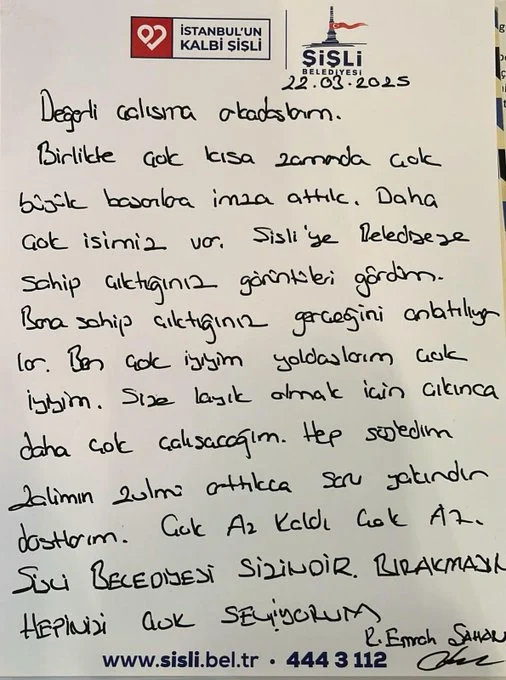 İSTANBUL'UN
KALBİ ŞİŞLİ
ŞİŞLİ
BELEDİYESİ
22.03.2025
Değerli çalışma arkadaşlarım.
Birlikte çok kısa zamanda çok
büyük başarılara imza attık. Daha
çok işimiz var. Şişli'ye Belediyeye
sahip çıktığınız görüntüleri gördüm.
Bana sahip çıktığınız gerçeğini anlatılıyor
lar. Ben çok iyiyim yoldaşlarım çok
iyiyim. Size layık olmak için çıkınca
daha çok çalışacağım. Hep söyledim
zalimin zulmü arttıkca sonu yakındır
dostlarım. Çok Az Kaldı Çok Az.
ŞİŞLİ BELEDİYESİ SİZİNDİR. BIRAKMAYIN
HEPİNİZİ ÇOK SEVİYORUM
R. Emrah ŞAHAN
www.sisli.bel.tr • 444 3 112